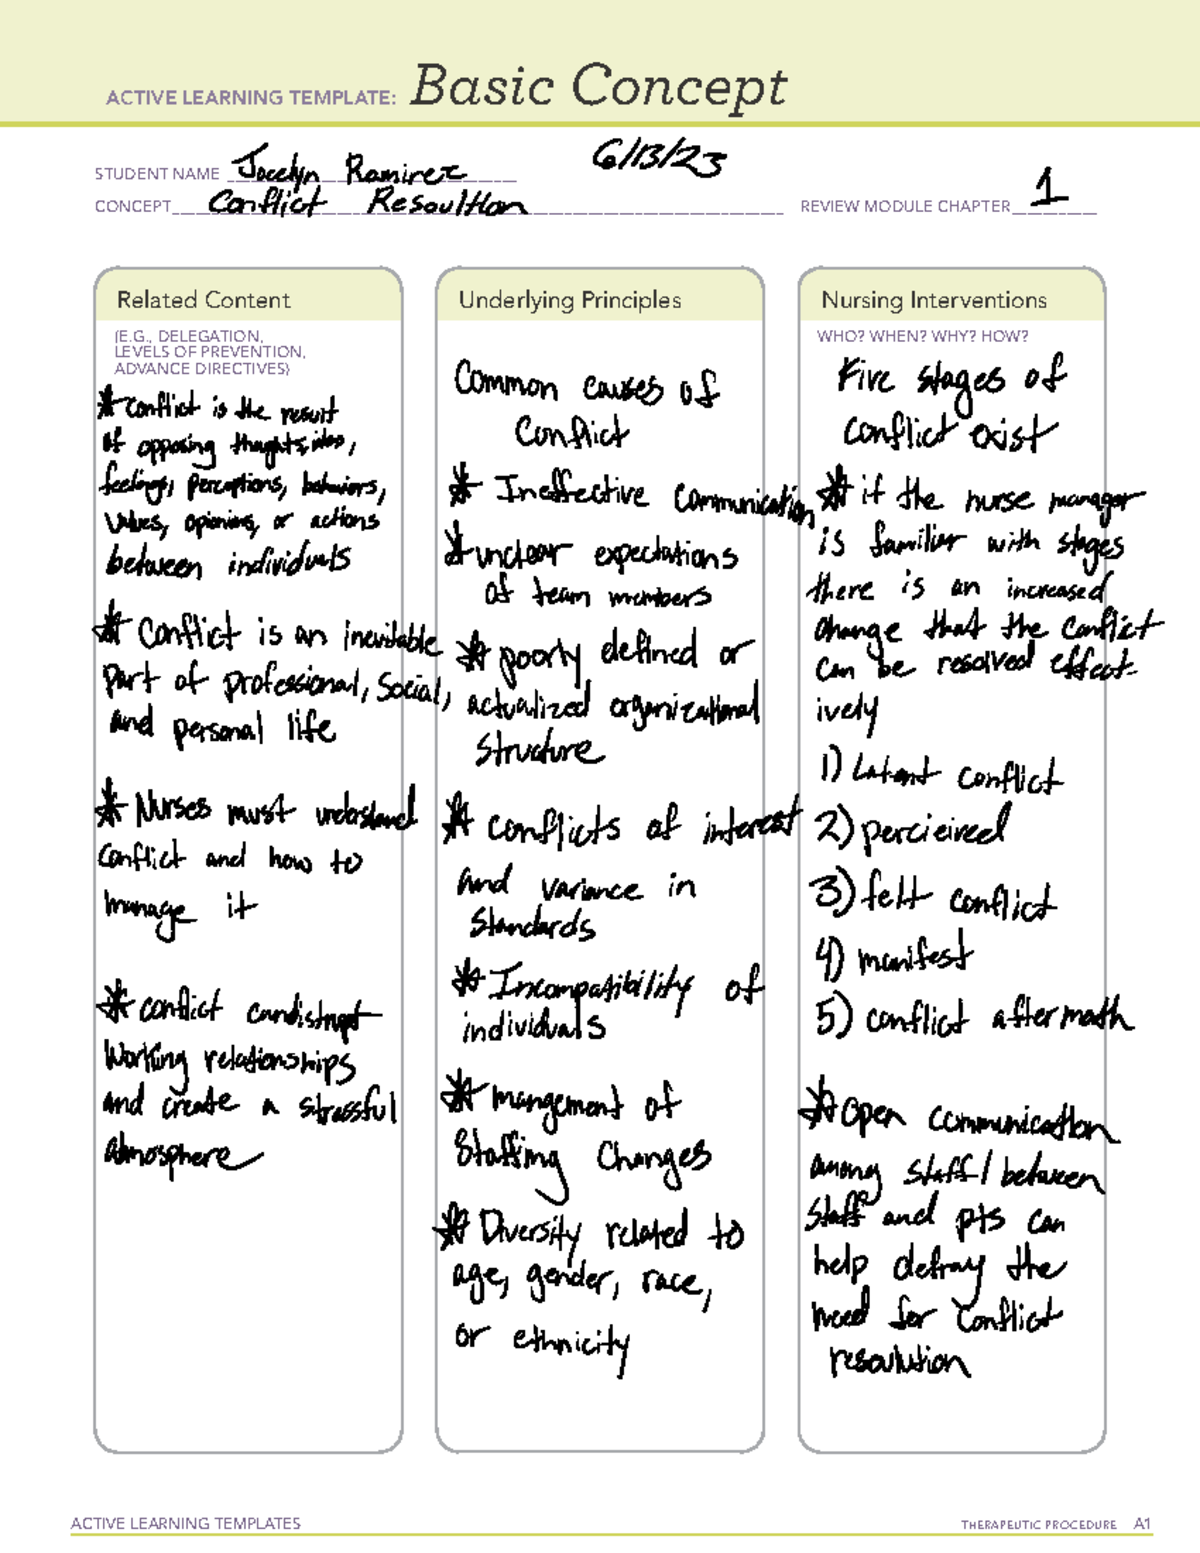 ACTIVE LEARNING TEMPLATE: Basic Concept
6/13/23
STUDENT NAME Jocelyn Ramirez
CONCEPT Conflict Resoultion REVIEW MODULE CHAPTER 1
Related Content
(E.G., DELEGATION,
LEVELS OF PREVENTION,
ADVANCE DIRECTIVES)
* Conflict is the result
of opposing thoughts, ideas,
feelings, perceptions, behaviors,
values, opinions, or actions
between individuals
* Conflict is an inevitable
part of professional, social,
and personal life
* Nurses must understand
conflict and how to
manage it
* conflict can disrupt
working relationships
and create a stressful
atmosphere
Underlying Principles
Common causes of
Conflict
* Ineffective communication
* unclear expectations
of team members
* poorly defined or
actualized organizational
structure
* conflicts of interest
and variance in
standards
* Incompatibility of
individuals
* mangement of
staffing changes
* Diversity related to
age, gender, race,
or ethnicity
Nursing Interventions
WHO? WHEN? WHY? HOW?
Five stages of
conflict exist
* if the nurse manager
is familiar with stages
there is an increased
change that the conflict
can be resolved effect-
ively
1) Latent conflict
2) percieived
3) felt conflict
4) manifest
5) conflict aftermath
* Open communication
among staff/between
staff and pts can
help defray the
need for conflict
resoulution
ACTIVE LEARNING TEMPLATES
THERAPEUTIC PROCEDURE A1